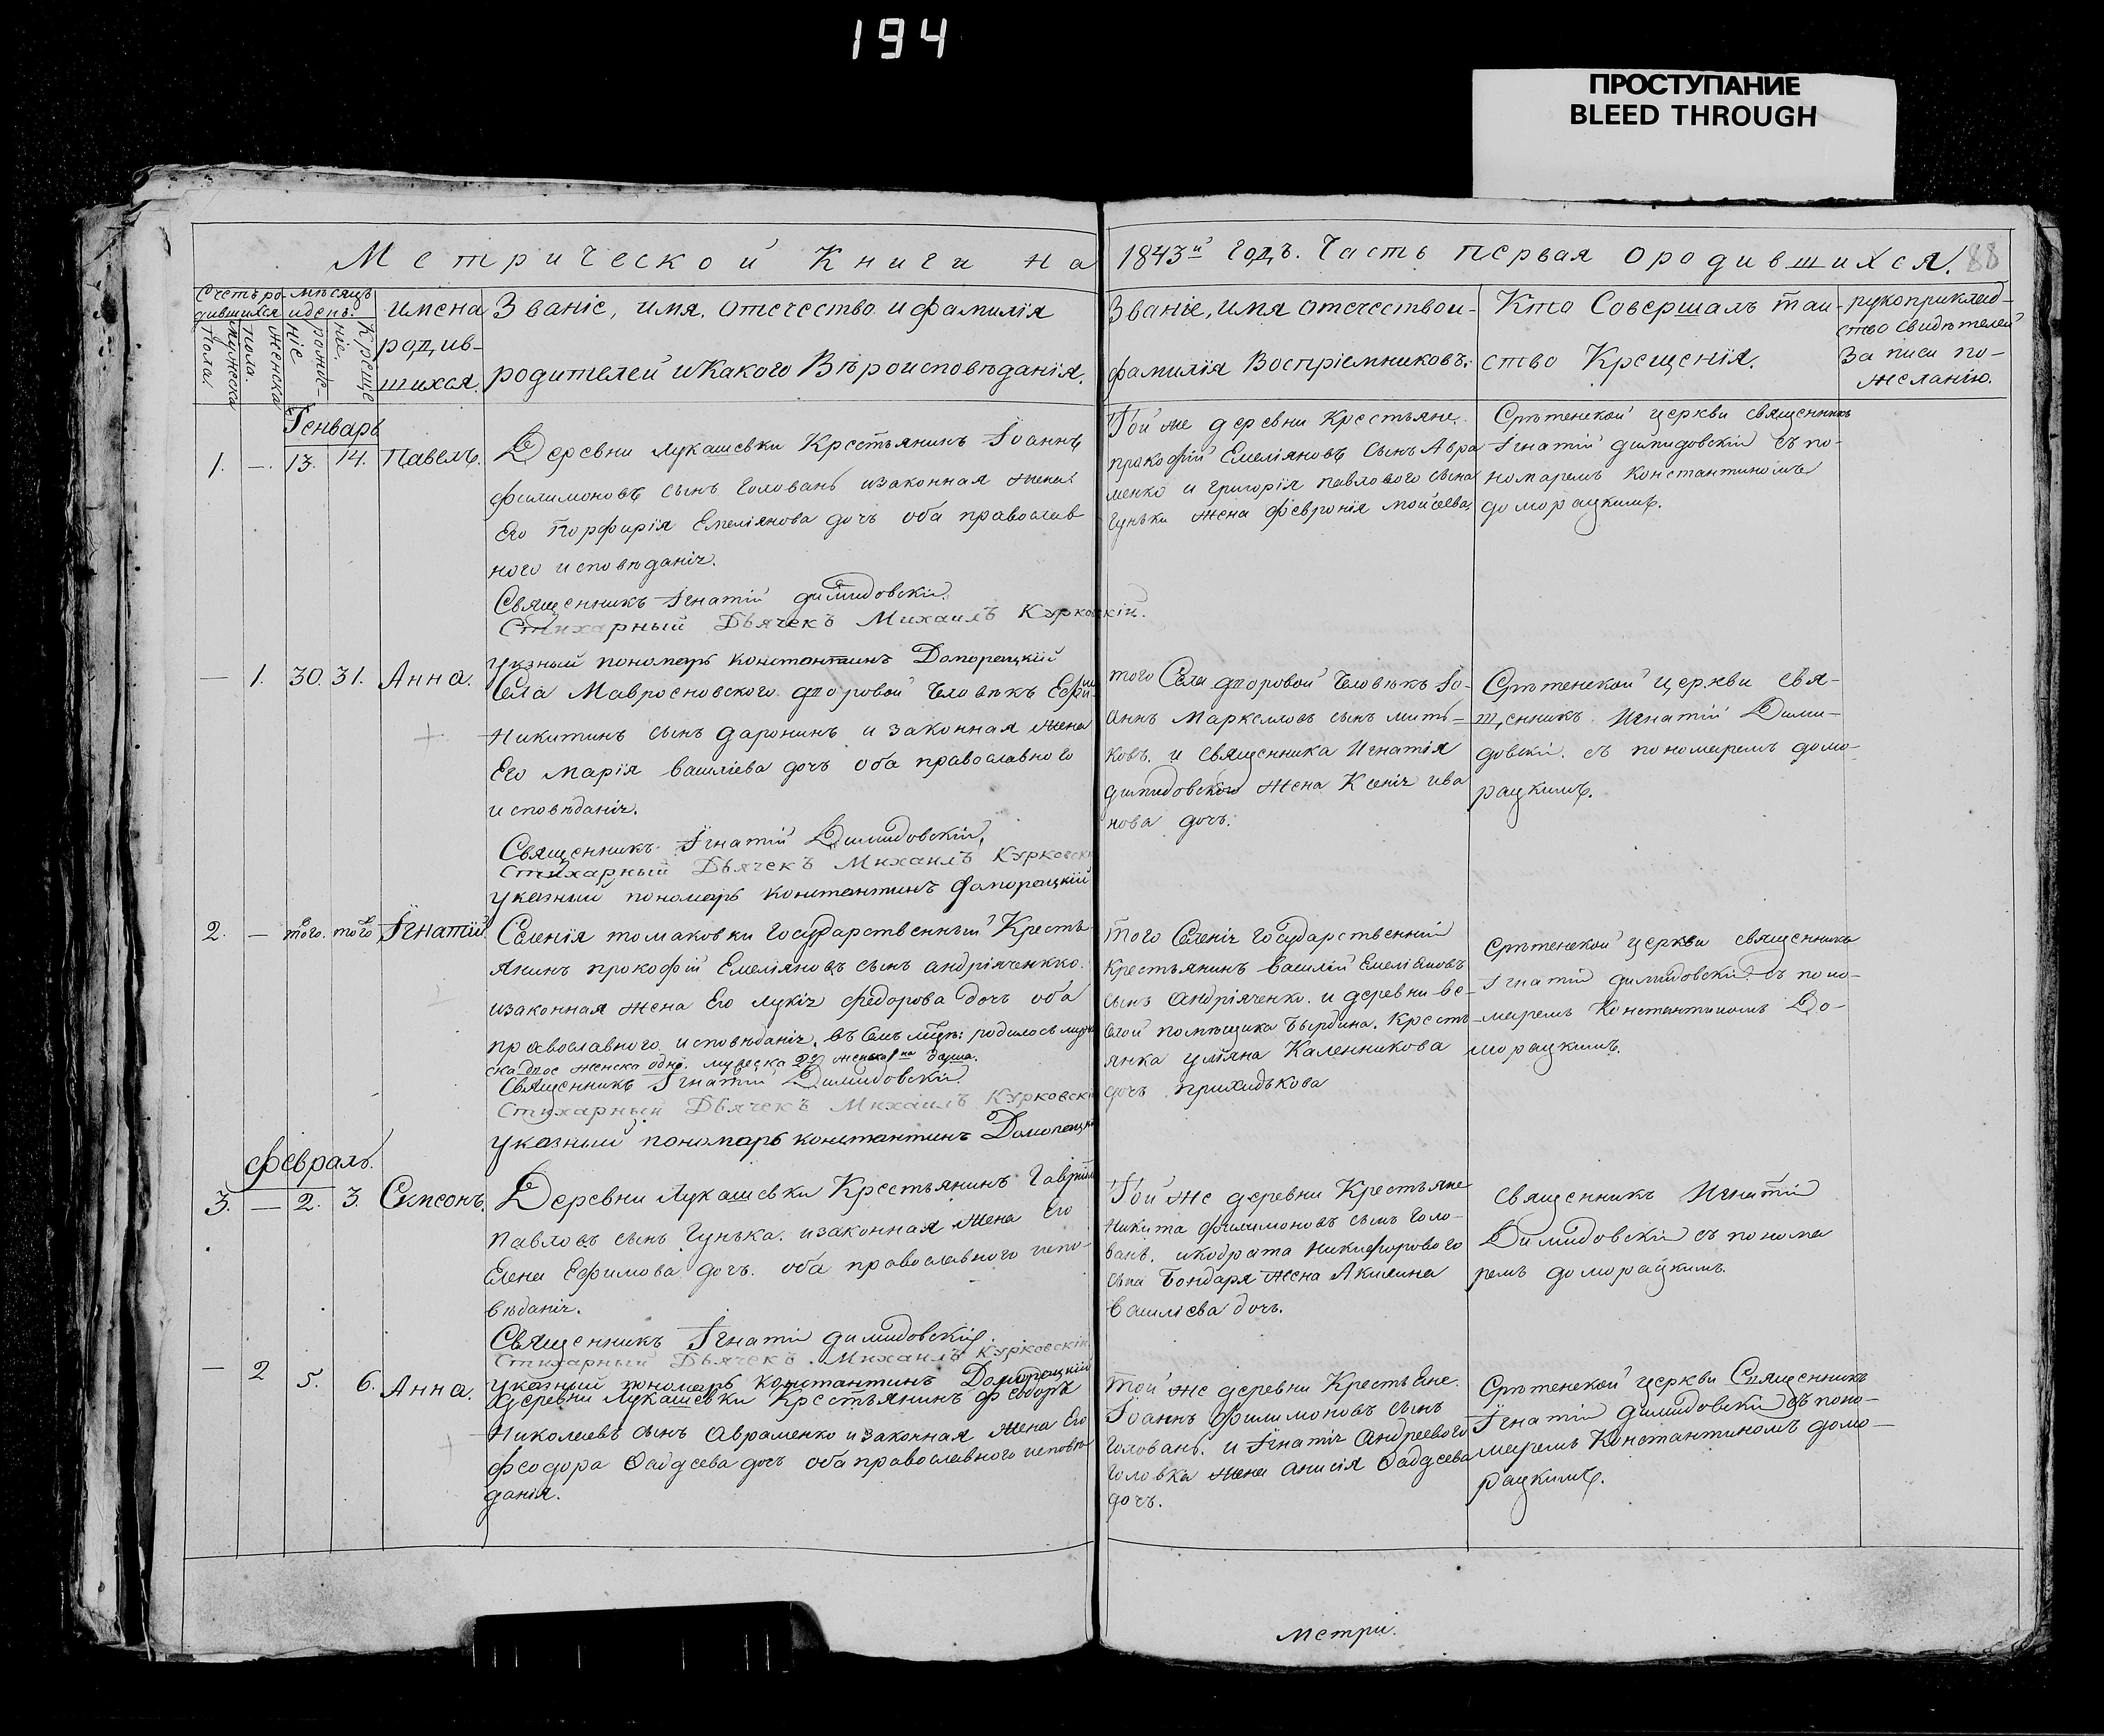 194
ПРОСТУПАНИЕ
BLEED THROUGH
Метрической Книги на
1843й годъ. Часть первая ородившихся.
88
Счетъ ро-
дившихся
мѣсяцъ
и день.
мужеска
пола.
женска
пола.
рожде-
ніе
Креще
ніе.
имена
родив-
шихся.
Званіе, имя, отечество и фамилія
родителей и какого Вѣроисповѣданія.
Званіе, имя отечество и-
фамилія Воспріемниковъ.
Кто Совершалъ таи-
ство Крещенія.
рукоприклад-
ство свидѣтелей
Записи по-
желанію.
Генварь
1. — 13. 14. Павелъ.
Деревни Лукашевки Крестьянинъ Іоаннъ
филимоновъ сынъ Головань изаконная жена
Его Порфирія Емеліянова дочь оба православ
ного исповѣданіч.
Священникъ Ігнатій димидовскій
Стихарный Дьячекъ Михаилъ Курковскій.
Указный пономарь константинъ Доморацкій
Той же деревни Крестьяне
прокофій Емеліяновъ сынъ Авра
менко и григорія павлового сына
гунька жена февронія мойсеева
Срѣтенской церкви священникъ
Ігнатій димидовскій съ по-
номаремъ Константиномъ
доморацкимъ.
— 1. 30. 31. Анна.
Села Мавросновского дворовой человѣкъ Ефим
Никитинъ сынъ даронинъ и законная жена
Его марія василіева дочь оба православного
исповѣданіч.
Священникъ Ігнатій Димидовскій,
Стихарный Дьячекъ Михаилъ Курковскі
указный пономарь константинъ доморацкій
того Села дворовой человѣкъ Іо-
аннъ Маркелловъ сынъ мить-
ковъ. и священника Игнатія
димидовского жена Ксеніч ива
нова дочь.
Срѣтенской церкви свя-
щенникъ Игнатій Дими-
довскій. съ пономаремъ домо-
рацкимъ.
2. — того. того Ігнатій.
Селенія томаковки государственный Кресть
янинъ прокофій Емеліяновъ сынъ андріяченкко.
изаконная жена Его лукіч федорова дочь оба
православного исповѣданіч. въ семъ мцѣ: родилось муже
ска двое женска одно. мужеска женска душа.
Священникъ Ігнатій Димидовскій.
Стихарный Дьячекъ Михаилъ Курковскі
указный пономарь константинъ Доморацкі
того Селеніч государственній
крестьянинъ василій Емеліяновъ
сынъ Андріяченко. и деревни ве-
помѣщика Бырдина. Кресть-
янка уліяна Каленникова
дочь прихидькова
Срѣтенской церкви священникъ
Ігнатій димидовскій съ поно-
маремъ Константиномъ До-
морацкимъ.
февраль.
3. — 2. 3. Симеонъ.
Деревни Лукашевки Крестьянинъ Гавріил
Павловъ сынъ Гунька. изаконная жена Его
Елена Ефимова дочь. оба православного испо-
вѣданіч.
Священникъ Ігнатій димидовскій.
Стихарный Дьячекъ Михаилъ Курковскій
указный пономарь константинъ Доморацкій
Той же деревни Крестьяне
Никита филимоновъ сынъ голо-
вань. икодрата Никифорового
сына Бондаря жена Акилина
василіева дочь.
священникъ Игнатій
Димидовскій съ понома
ремъ доморацкимъ.
— 2 5. 6. Анна.
деревни Лукашевки Крестьянинъ федоръ
Николаевъ сынъ Авраменко изаконная жена Его
феодора Фаддеева дочь оба православного исповѣ
данія.
той же деревни Крестьяне.
Іоаннъ филимоновъ сынъ
Головань. и Ігнатіч Андреевого
головка жена анисія Фаддеева
дочь.
Срѣтенской церкви Священникъ
Ігнатій димидовскій съ поно-
маремъ Константиномъ домо-
рацкимъ.
Метри.